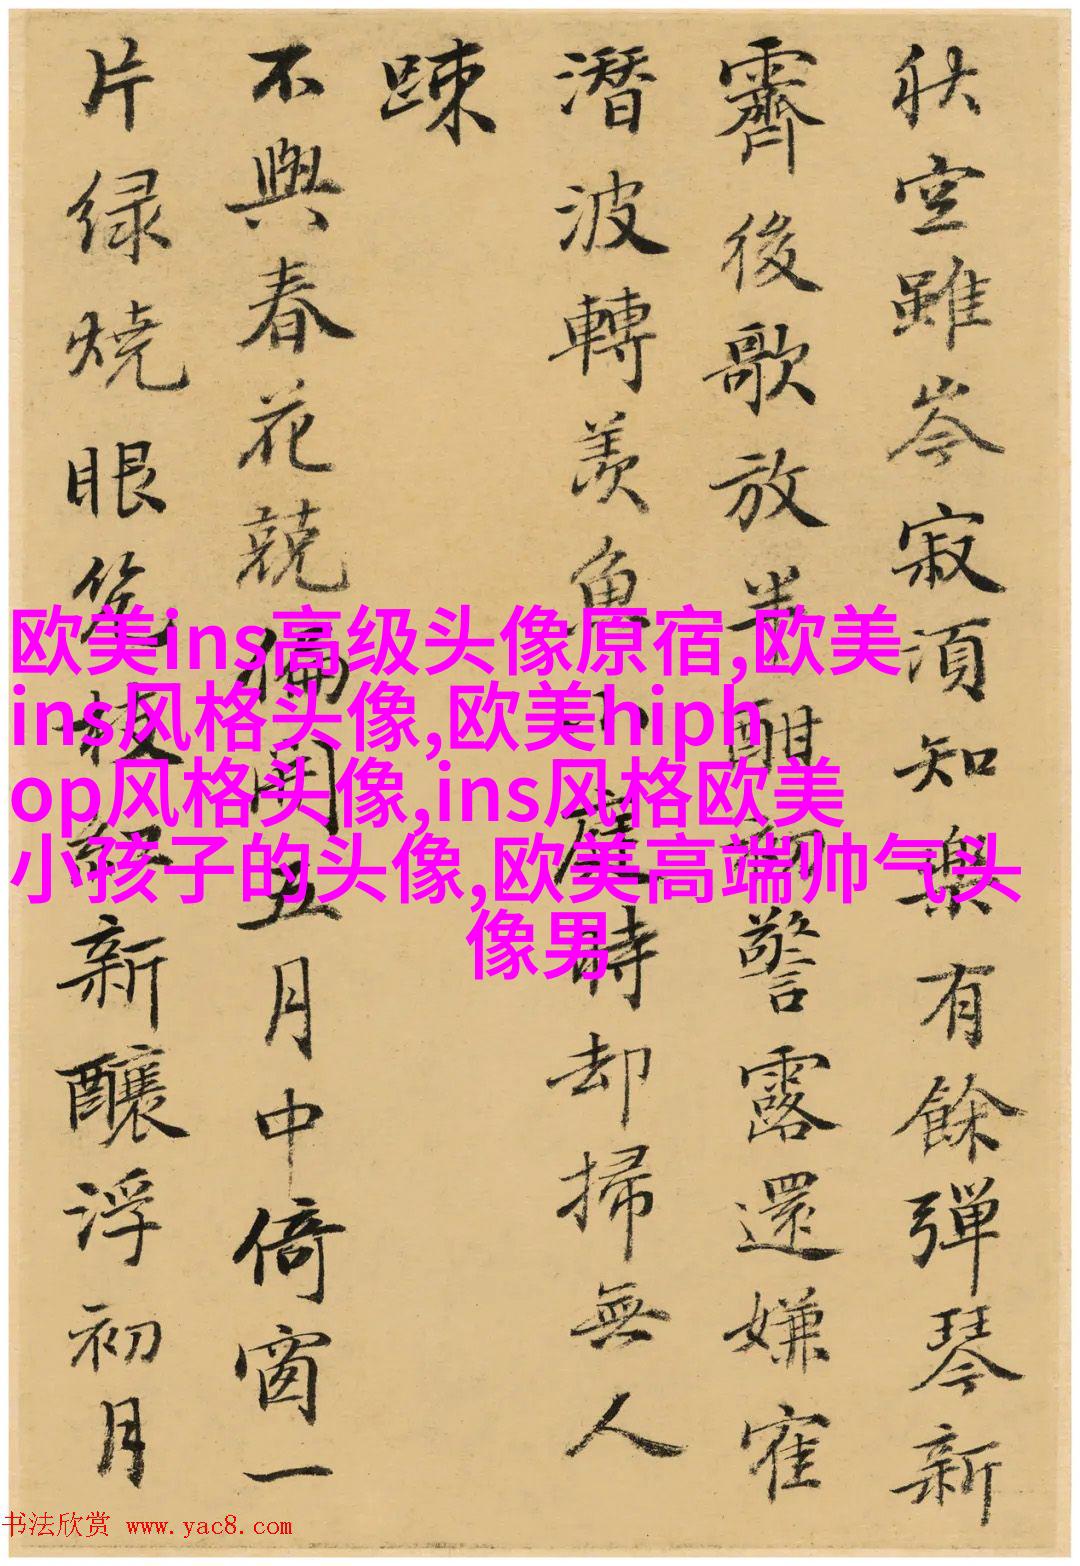 秋空雖岑寂須知樂有餘彈琴新
霽後歌放半酣初警露還嫌寉
潛波轉羨魚小庭時却掃無人
踈
不與春花競偏開五月中倚窗一
片緑燒眼
枝紅新釀浮初月
欧美ins高级头像原宿,欧美
ins风格头像,欧美hiph
op风格头像,ins风格欧美
小孩子的头像,欧美高端帅气头
像男
书法欣赏 www.yac8.com